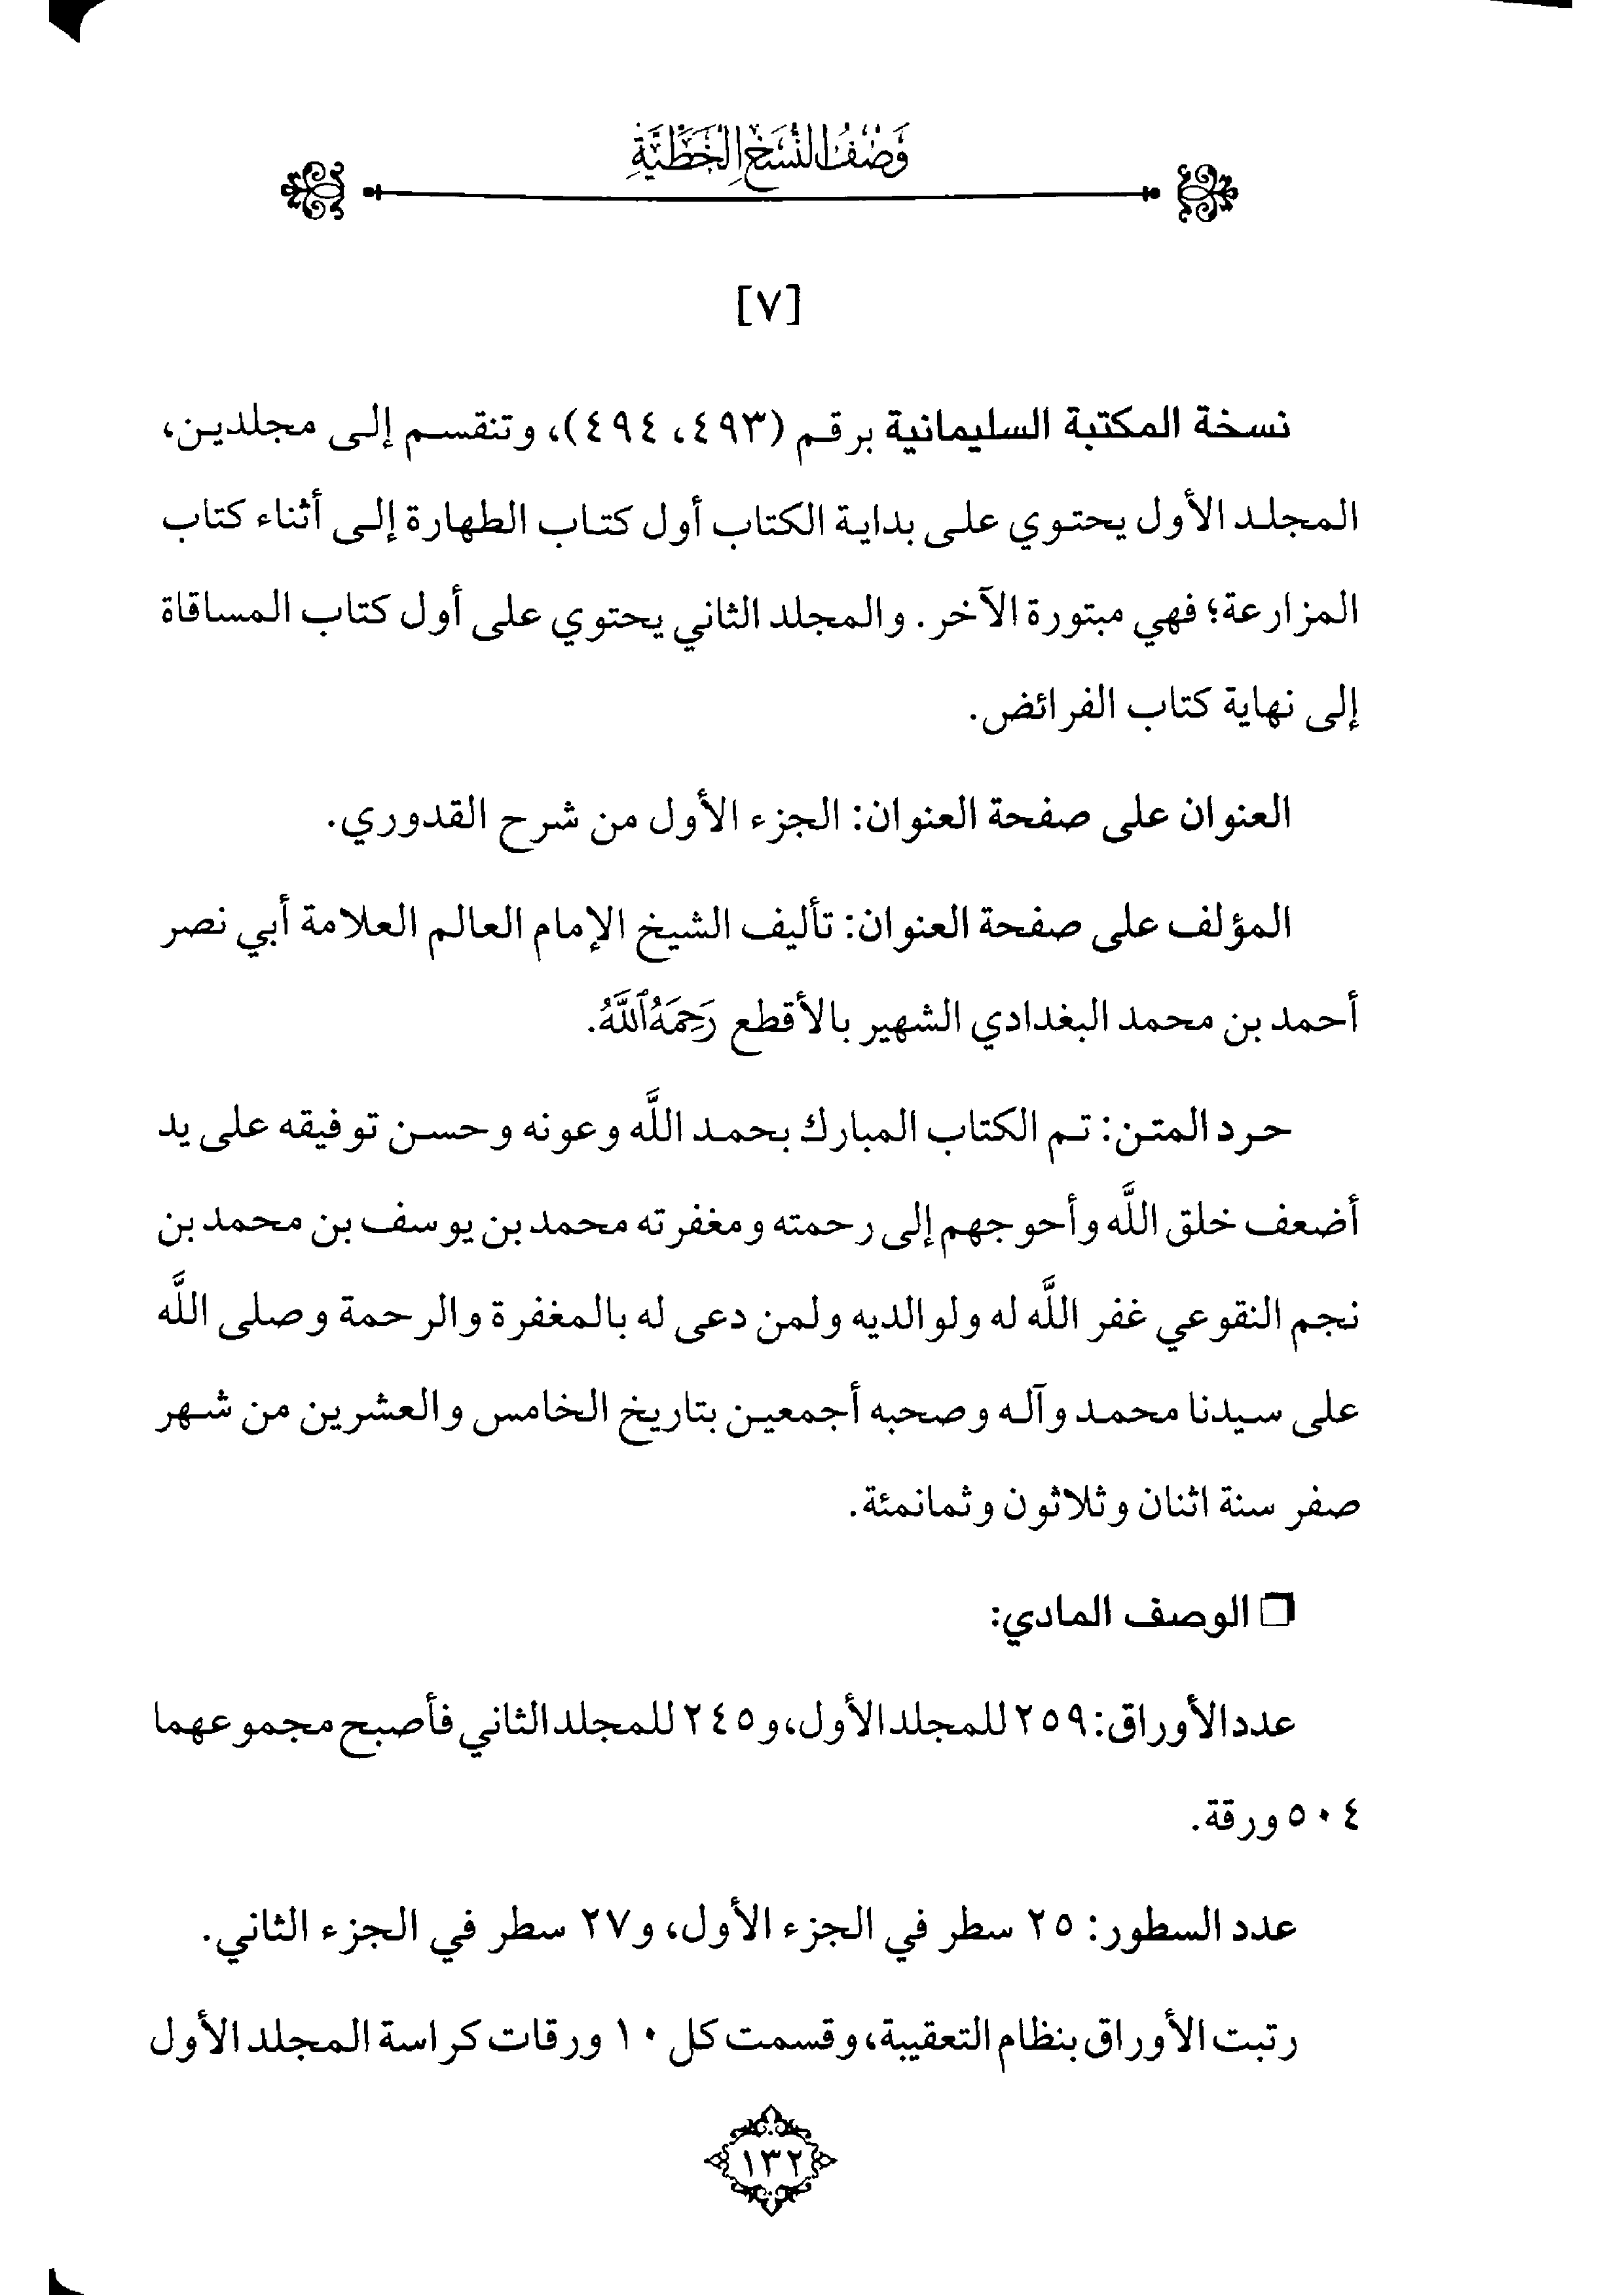 وَصْفُ النُّسَخِ الْخَطِّيَّةِ
[٧]
نسخة المكتبة السليمانية برقم (٤٩٣، ٤٩٤)، وتنقسم إلى مجلدين،
المجلد الأول يحتوي على بداية الكتاب أول كتاب الطهارة إلى أثناء كتاب
المزارعة؛ فهي مبتورة الآخر. والمجلد الثاني يحتوي على أول كتاب المساقاة
إلى نهاية كتاب الفرائض.
العنوان على صفحة العنوان: الجزء الأول من شرح القدوري.
المؤلف على صفحة العنوان: تأليف الشيخ الإمام العالم العلامة أبي نصر
أحمد بن محمد البغدادي الشهير بالأقطع رَحِمَهُ ٱللَّهُ.
حرد المتن: تم الكتاب المبارك بحمد اللَّه وعونه وحسن توفيقه على يد
أضعف خلق اللَّه وأحوجهم إلى رحمته ومغفرته محمد بن يوسف بن محمد بن
نجم النقوعي غفر اللَّه له ولوالديه ولمن دعى له بالمغفرة والرحمة وصلى اللَّه
على سيدنا محمد وآله وصحبه أجمعين بتاريخ الخامس والعشرين من شهر
صفر سنة اثنان وثلاثون وثمانمئة.
❒ الوصف المادي:
عدد الأوراق: ٢٥٩ للمجلد الأول، و٢٤٥ للمجلد الثاني فأصبح مجموعهما
٥٠٤ ورقة.
عدد السطور: ٢٥ سطر في الجزء الأول، و٢٧ سطر في الجزء الثاني.
رتبت الأوراق بنظام التعقيبة، وقسمت كل ١٠ ورقات كراسة المجلد الأول
١٣٢